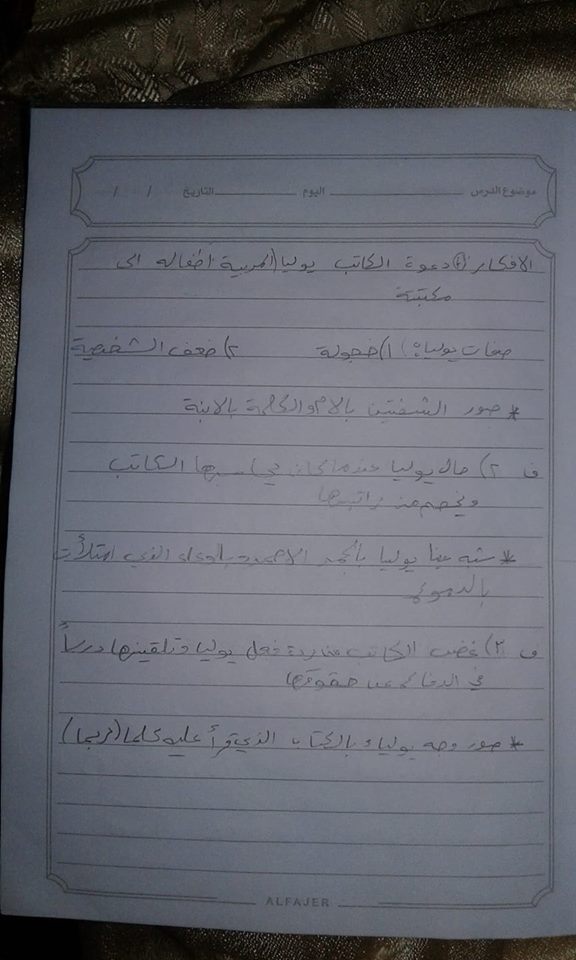 موضوع الدرس اليوم التاريخ / /
الافكار (١) دعوة الكاتب يوليا (المربية أطفاله الى
مكتبته
صفات يوليا: ١) خجولة ٢) ضعف الشخصية
* صور الشفتين بالأم والكلمة بالابنة
ف ٢) حال يوليا عندما كان يحاسبها الكاتب
ويخصم من راتبها
* شبه عينا يوليا بالجمر الاحمر وبالوعاء الذي امتلأت
بالدموع
ف ٣) غضب الكاتب من ردة فعل يوليا وتلقينها درساً
في الدفاع عن حقوقها
* صور وجه يوليا بالكتاب الذي قرأ عليه كلما (ربما)
ALFAJER